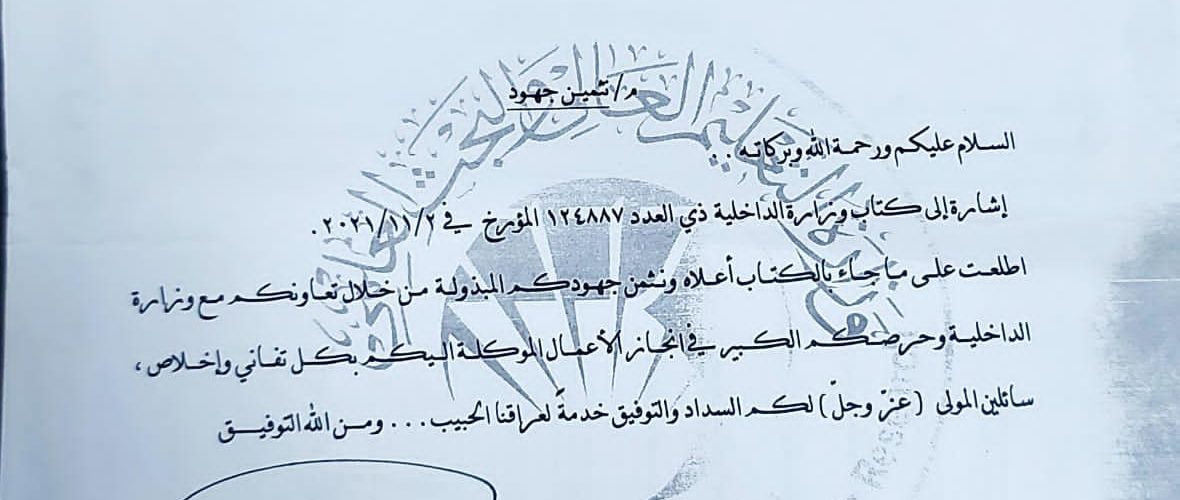 م/ تثمين جهود
السلام عليكم ورحمة الله وبركاته ..
إشارة إلى كتاب وزارة الداخلية ذي العدد ١٢٤٨٨٧ المؤرخ في ٢٠٢١/١١/٢ .
اطلعت على ما جاء بالكتاب أعلاه ونثمن جهودكم المبذولة من خلال تعاونكم مع وزارة
الداخلية وحرصكم الكبير في انجاز الأعمال الموكلة اليكم بكل تفاني وإخلاص ،
سائلين المولى (عزّ وجلّ) لكم السداد والتوفيق خدمةً لعراقنا الحبيب ... ومن الله التوفيق